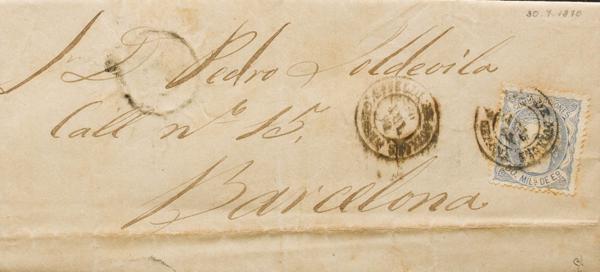 30.7.1870
Sr. D. Pedro Soldevila
Call nº 15.
Barcelona
50. MILS. DE ES